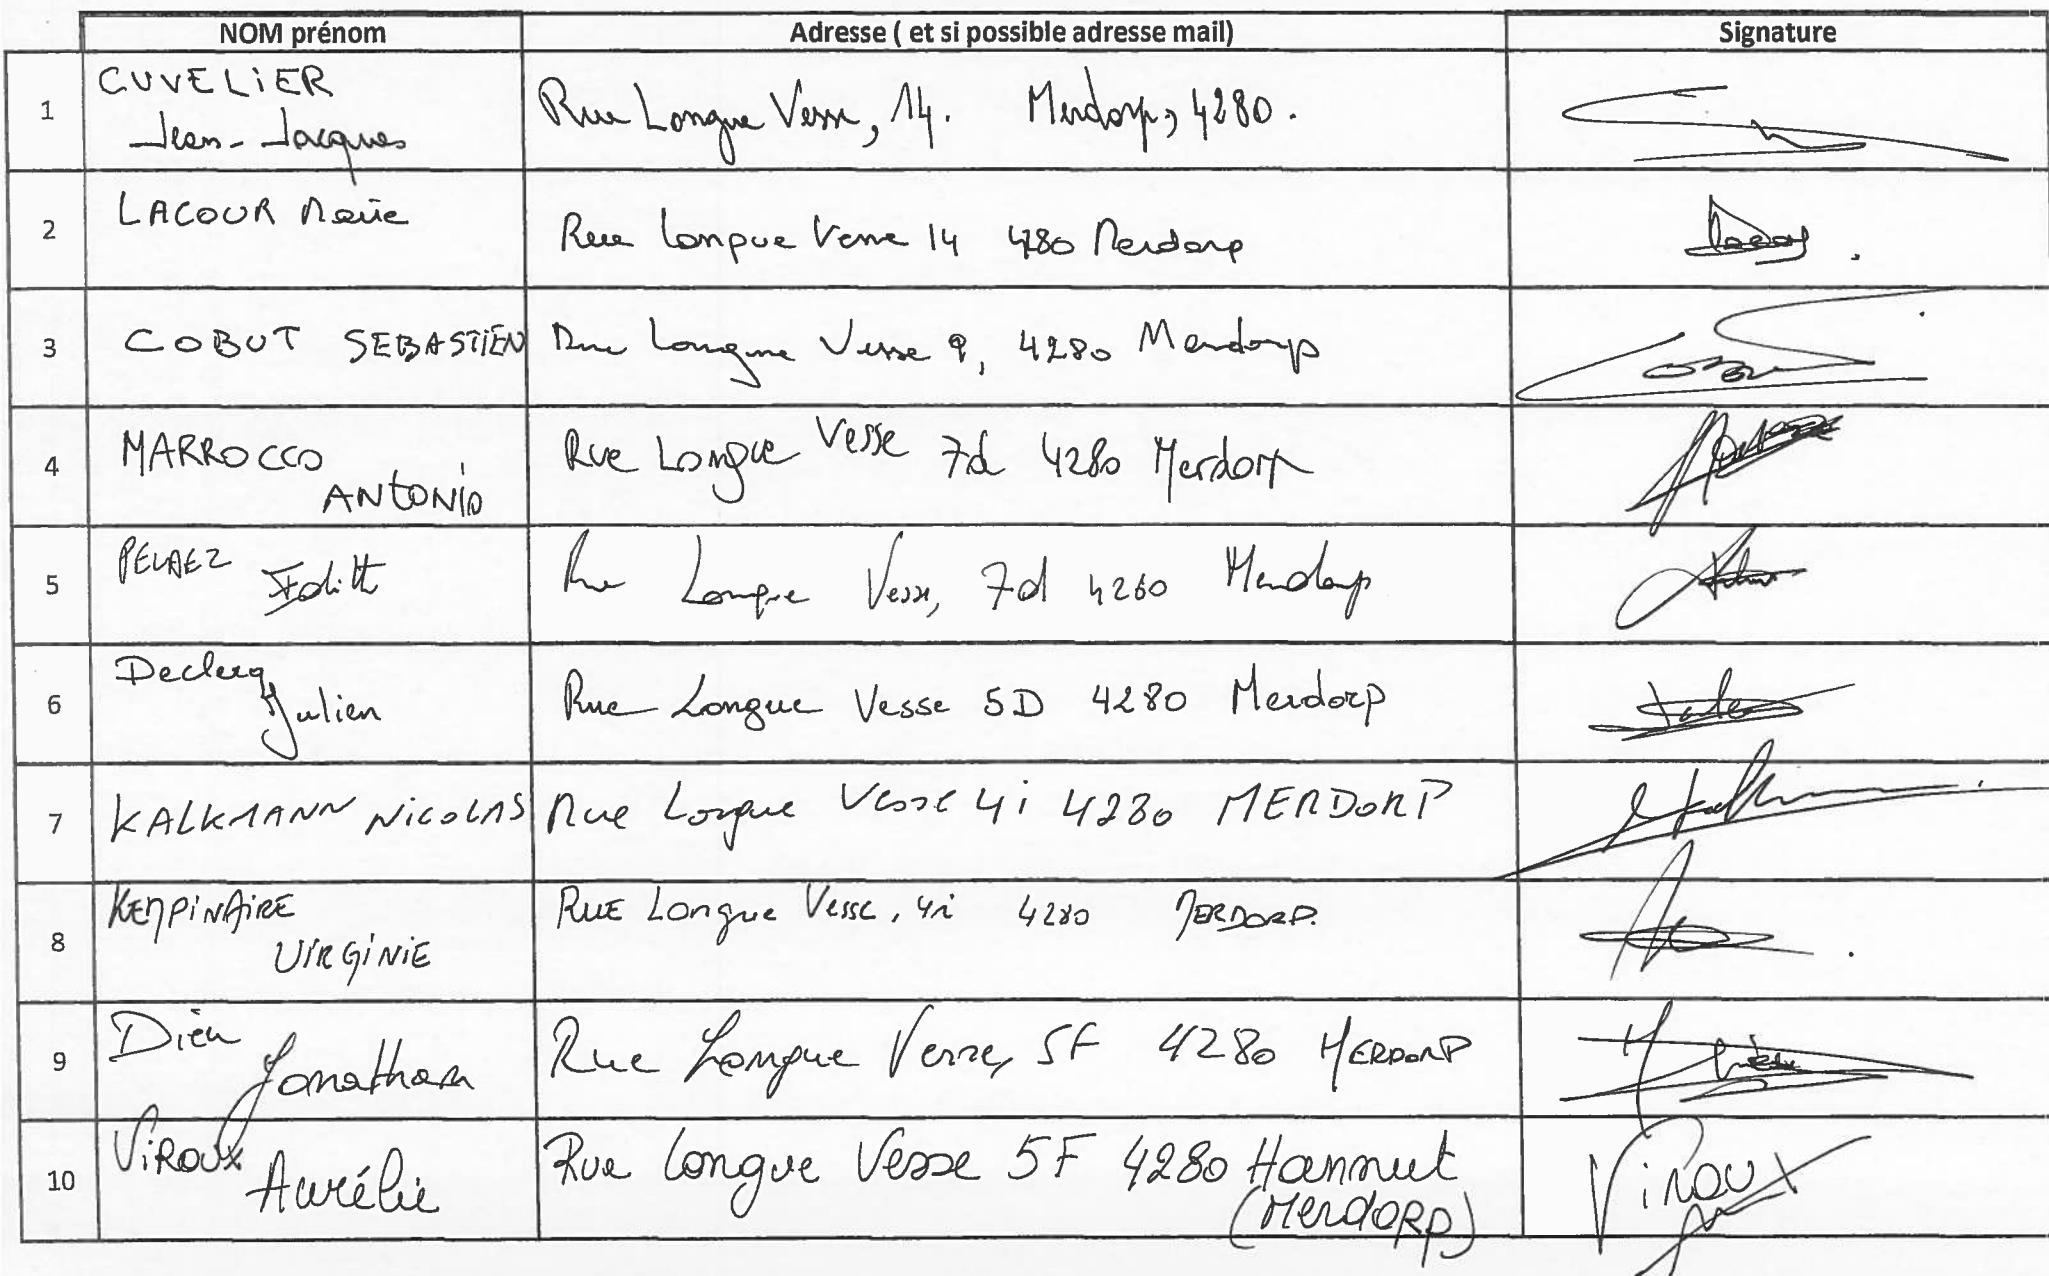 NOM prénom Adresse ( et si possible adresse mail) Signature
1 CUVELIER Jean-Jacques Rue Longue Vesse, 14. Merdorp, 4280.
2 LACOUR Marie Rue Longue Vesse 14 4280 Merdorp
3 COBUT SEBASTIEN Rue Longue Vesse 9, 4280 Merdorp
4 MARROCCO ANTONIO Rue Longue Vesse 7d 4280 Merdorp
5 PELAEZ Edith Rue Longue Vesse, 7d 4280 Merdorp
6 Declerq Julien Rue Longue Vesse 5D 4280 Merdorp
7 KALKMANN NICOLAS Rue Longue Vesse 4i 4280 MERDORP
8 KEMPINAIRE VIRGINIE RUE Longue Vesse, 4i 4280 MERDORP.
9 Dieu Jonathan Rue Longue Vesse, 5F 4280 MERDORP
10 VIROUX Aurélie Rue Longue Vesse 5F 4280 Hannut (Merdorp) VIROUX